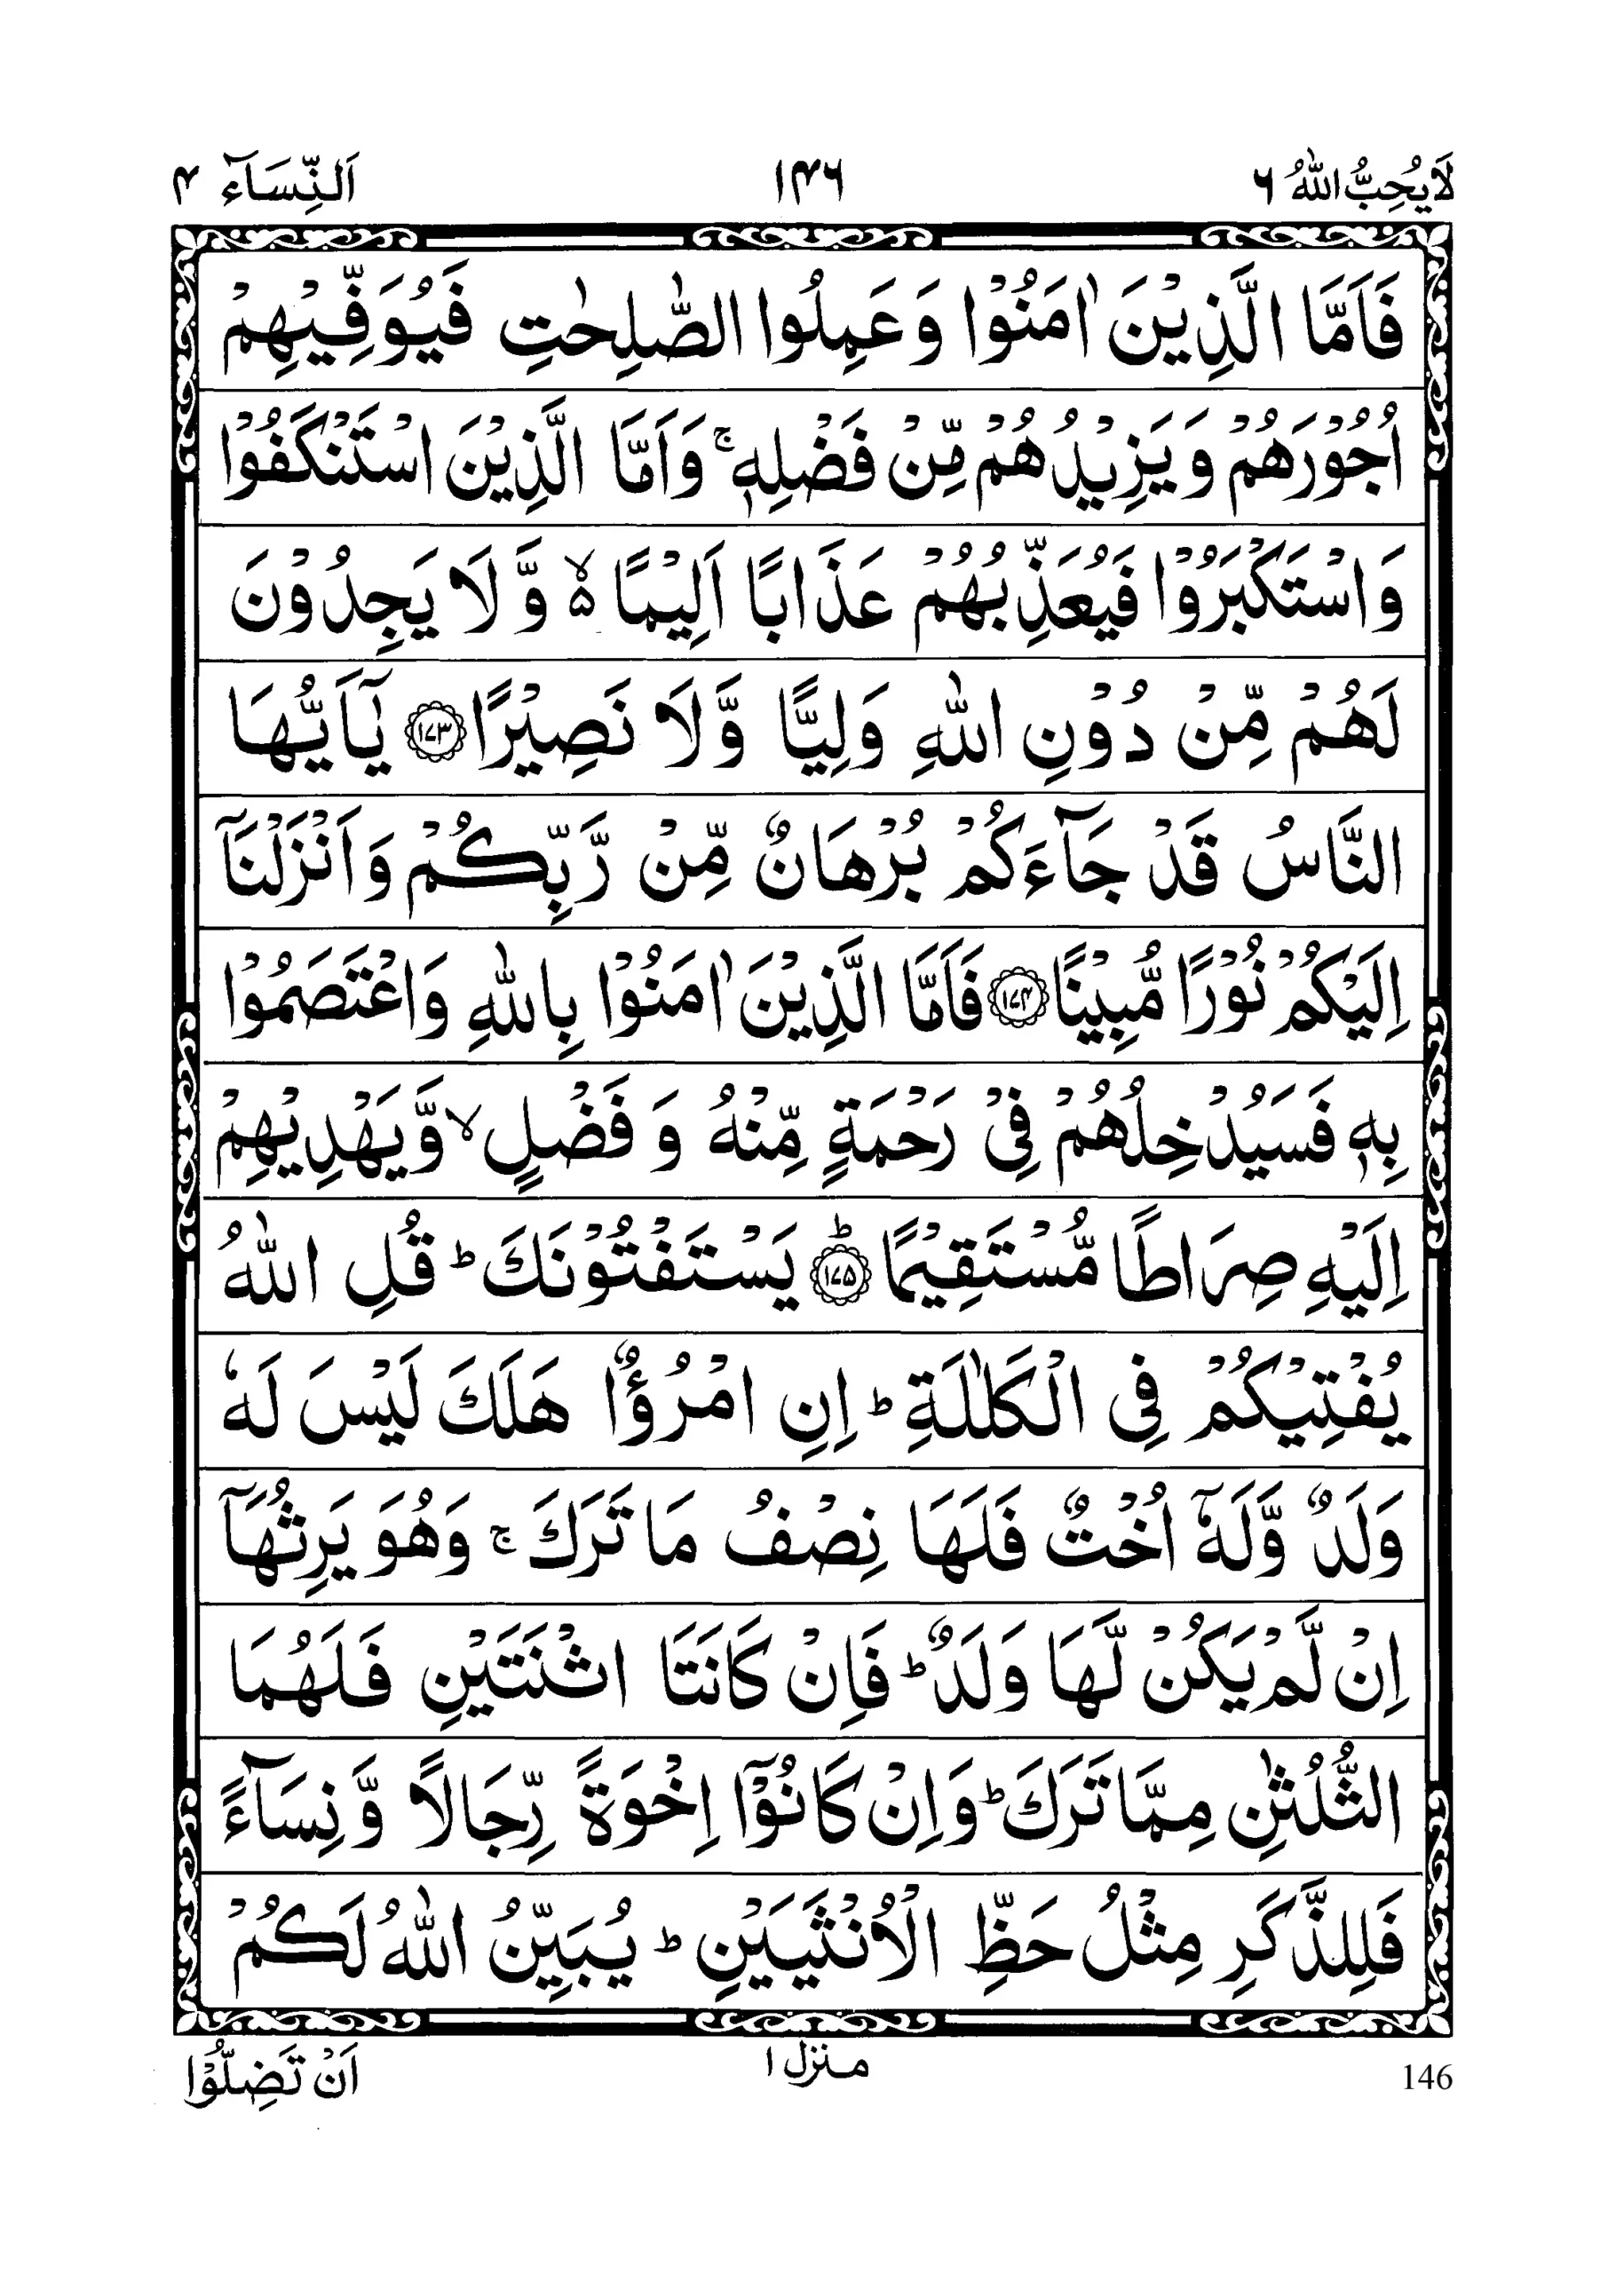 لَا یُحِبُّ اللّٰهُ ۶ ۱۴۶ اَلنِّسَآء ۴
فَاَمَّا الَّذِیْنَ اٰمَنُوْا وَ عَمِلُوا الصّٰلِحٰتِ فَیُوَفِّیْهِمْ
اُجُوْرَهُمْ وَ یَزِیْدُهُمْ مِّنْ فَضْلِهٖ ۚ وَ اَمَّا الَّذِیْنَ اسْتَنْكَفُوْا
وَ اسْتَكْبَرُوْا فَیُعَذِّبُهُمْ عَذَابًا اَلِیْمًا ۙ۬ وَّ لَا یَجِدُوْنَ
لَهُمْ مِّنْ دُوْنِ اللّٰهِ وَلِیًّا وَّ لَا نَصِیْرًا ﴿۱۷۳﴾ یٰۤاَیُّهَا
النَّاسُ قَدْ جَآءَكُمْ بُرْهَانٌ مِّنْ رَّبِّكُمْ وَ اَنْزَلْنَاۤ
اِلَیْكُمْ نُوْرًا مُّبِیْنًا ﴿۱۷۴﴾ فَاَمَّا الَّذِیْنَ اٰمَنُوْا بِاللّٰهِ وَ اعْتَصَمُوْا
بِهٖ فَسَیُدْخِلُهُمْ فِیْ رَحْمَةٍ مِّنْهُ وَ فَضْلٍ ۙ وَّ یَهْدِیْهِمْ
اِلَیْهِ صِرَاطًا مُّسْتَقِیْمًا ﴿۱۷۵﴾ؕ یَسْتَفْتُوْنَكَ ؕ قُلِ اللّٰهُ
یُفْتِیْكُمْ فِی الْكَلٰلَةِ ؕ اِنِ امْرُؤٌا هَلَكَ لَیْسَ لَهٗ
وَلَدٌ وَّ لَهٗۤ اُخْتٌ فَلَهَا نِصْفُ مَا تَرَكَ ۚ وَ هُوَ یَرِثُهَاۤ
اِنْ لَّمْ یَكُنْ لَّهَا وَلَدٌ ؕ فَاِنْ كَانَتَا اثْنَتَیْنِ فَلَهُمَا
الثُّلُثٰنِ مِمَّا تَرَكَ ؕ وَ اِنْ كَانُوْۤا اِخْوَةً رِّجَالًا وَّ نِسَآءً
فَلِلذَّكَرِ مِثْلُ حَظِّ الْاُنْثَیَیْنِ ؕ یُبَیِّنُ اللّٰهُ لَكُمْ
146 منزل ۱ اَنْ تَضِلُّوْا